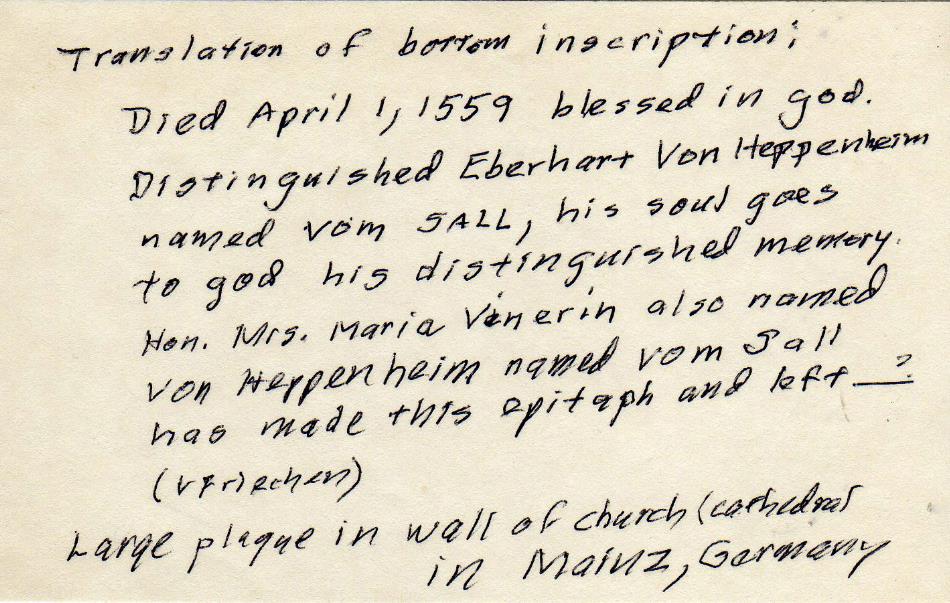 Translation of bottom inscription:
Died April 1, 1559 blessed in god.
Distinguished Eberhart Von Heppenheim
named vom SALL, his soul goes
to god his distinguished memory.
Hon. Mrs. Maria Vinerin also named
von Heppenheim named vom Sall
has made this epitaph and left __?
(vFriechen)
Large plaque in wall of church (cathedral
in Mainz, Germany